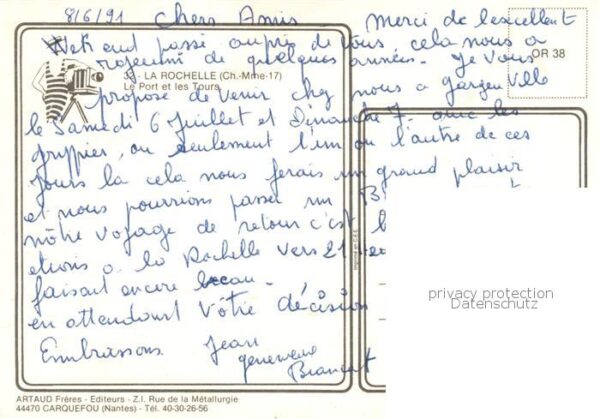 8/6/91 Chers Amis Merci de l'excellent
Week end passé auprès de vous cela nous a
rajeunit de quelques années. Je vous
OR 38
33 - LA ROCHELLE (Ch.-Mme-17)
Le Port et les Tours
propose de venir chez nous a gargenville
le Samedi 6 Juillet et Dimanche 7 - avec les
grypier, ou seulement l'un ou l'autre de ces
jours la cela nous ferais un grand plaisir
et nous pourrions passer un
nôtre voyage de retour c'est
etions a la Rochelle vers 21
faisait encore beau -
en attendant vôtre décision
Embrassons. Jean
genevieve
Imprimé en C.E.E.
privacy protection
Datenschutz
ARTAUD Frères - Editeurs - Z.I. Rue de la Métallurgie
44470 CARQUEFOU (Nantes) - Tél. 40-30-26-56